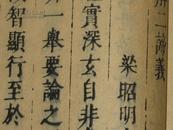 二諦義
梁昭明
實深玄自非
一舉要論之
智顯行至於